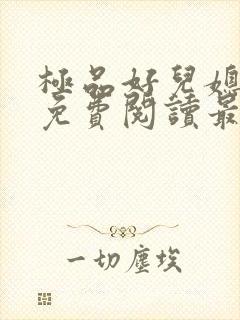 極品好兒媳
免費閱讀最
一切塵埃